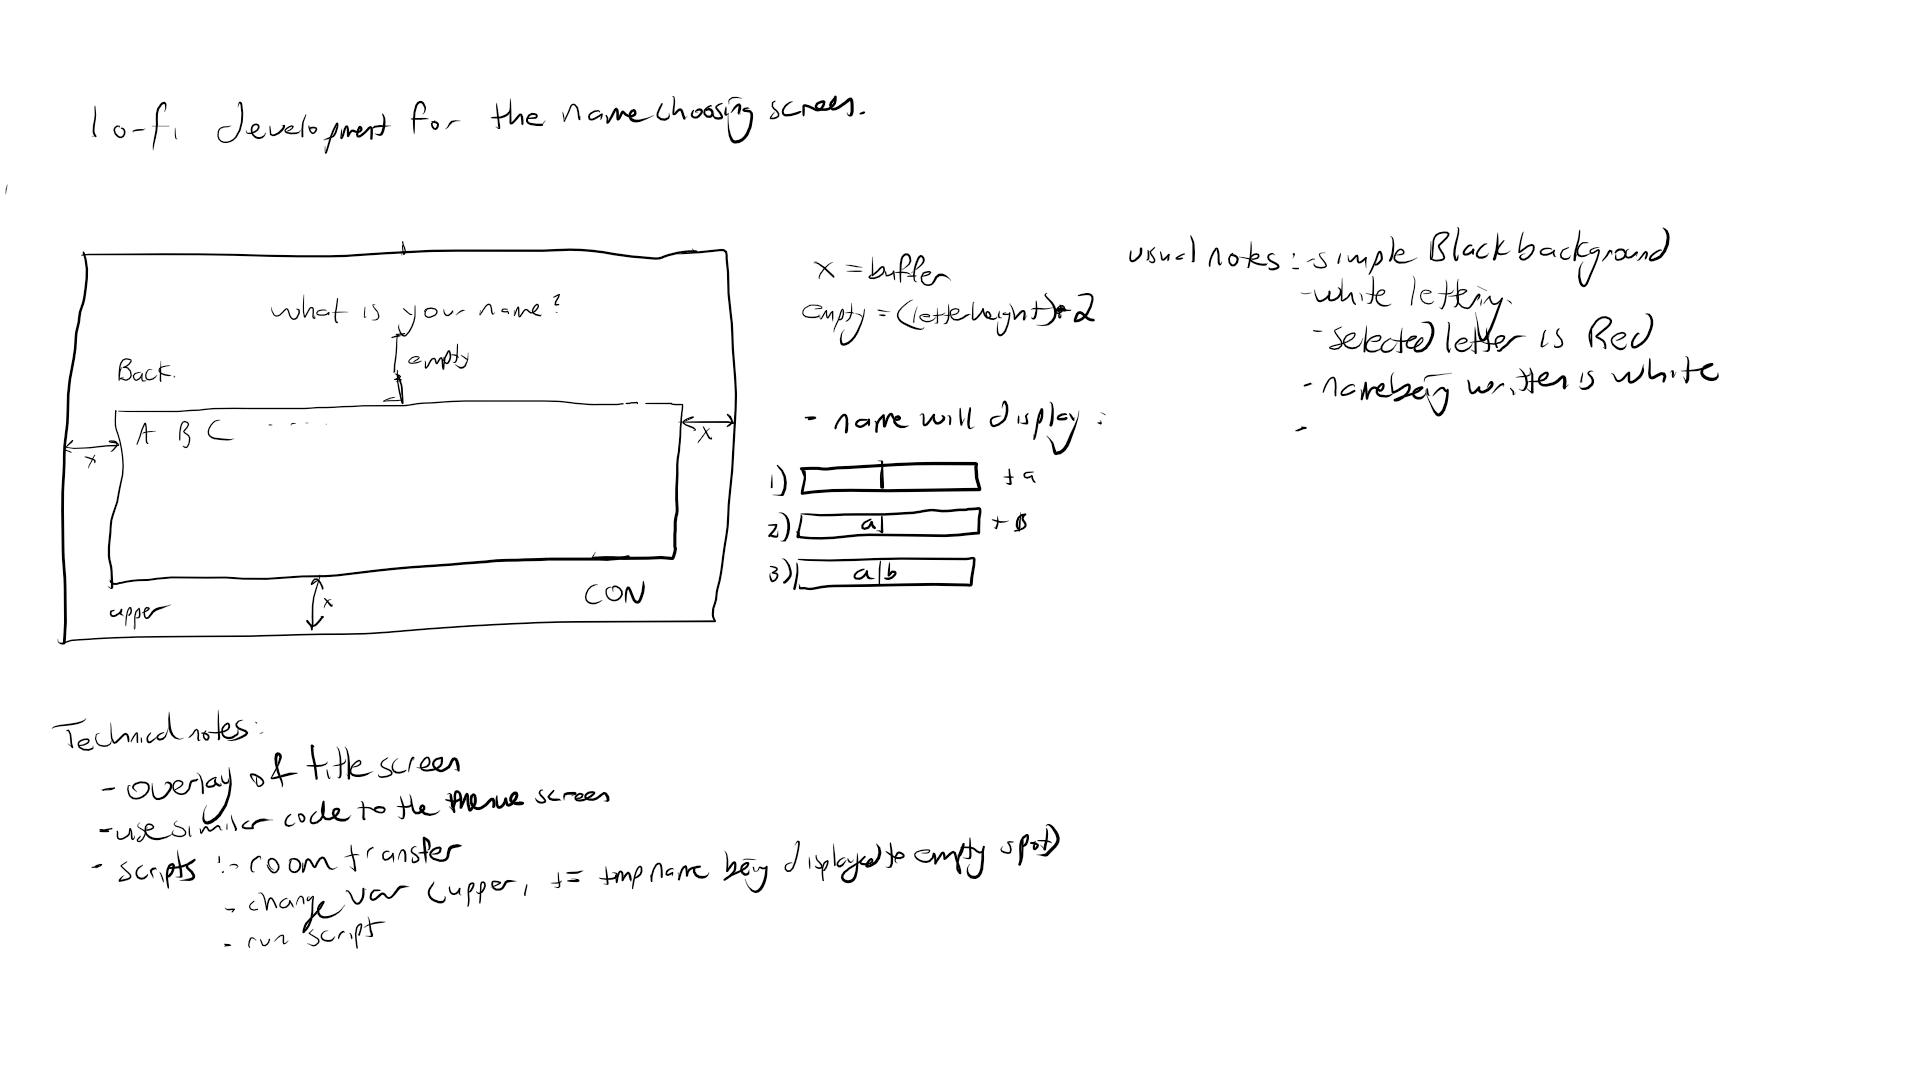 lo-fi development for the name choosing screen.
what is your name?
empty
Back.
A B C ....
x
x
x
upper
CON
x = buffer
empty = (letterheight)*2
- name will display:
1) + a
2) a + B
3) a b
visual notes: - simple Black background
- white lettering.
- selected letter is Red
- name being written is white
-
Technical notes:
- overlay of title screen
- use similar code to the menue screen
- scripts :- room transfer
- change var (upper, += tmp name being displayed to empty spot)
- run script